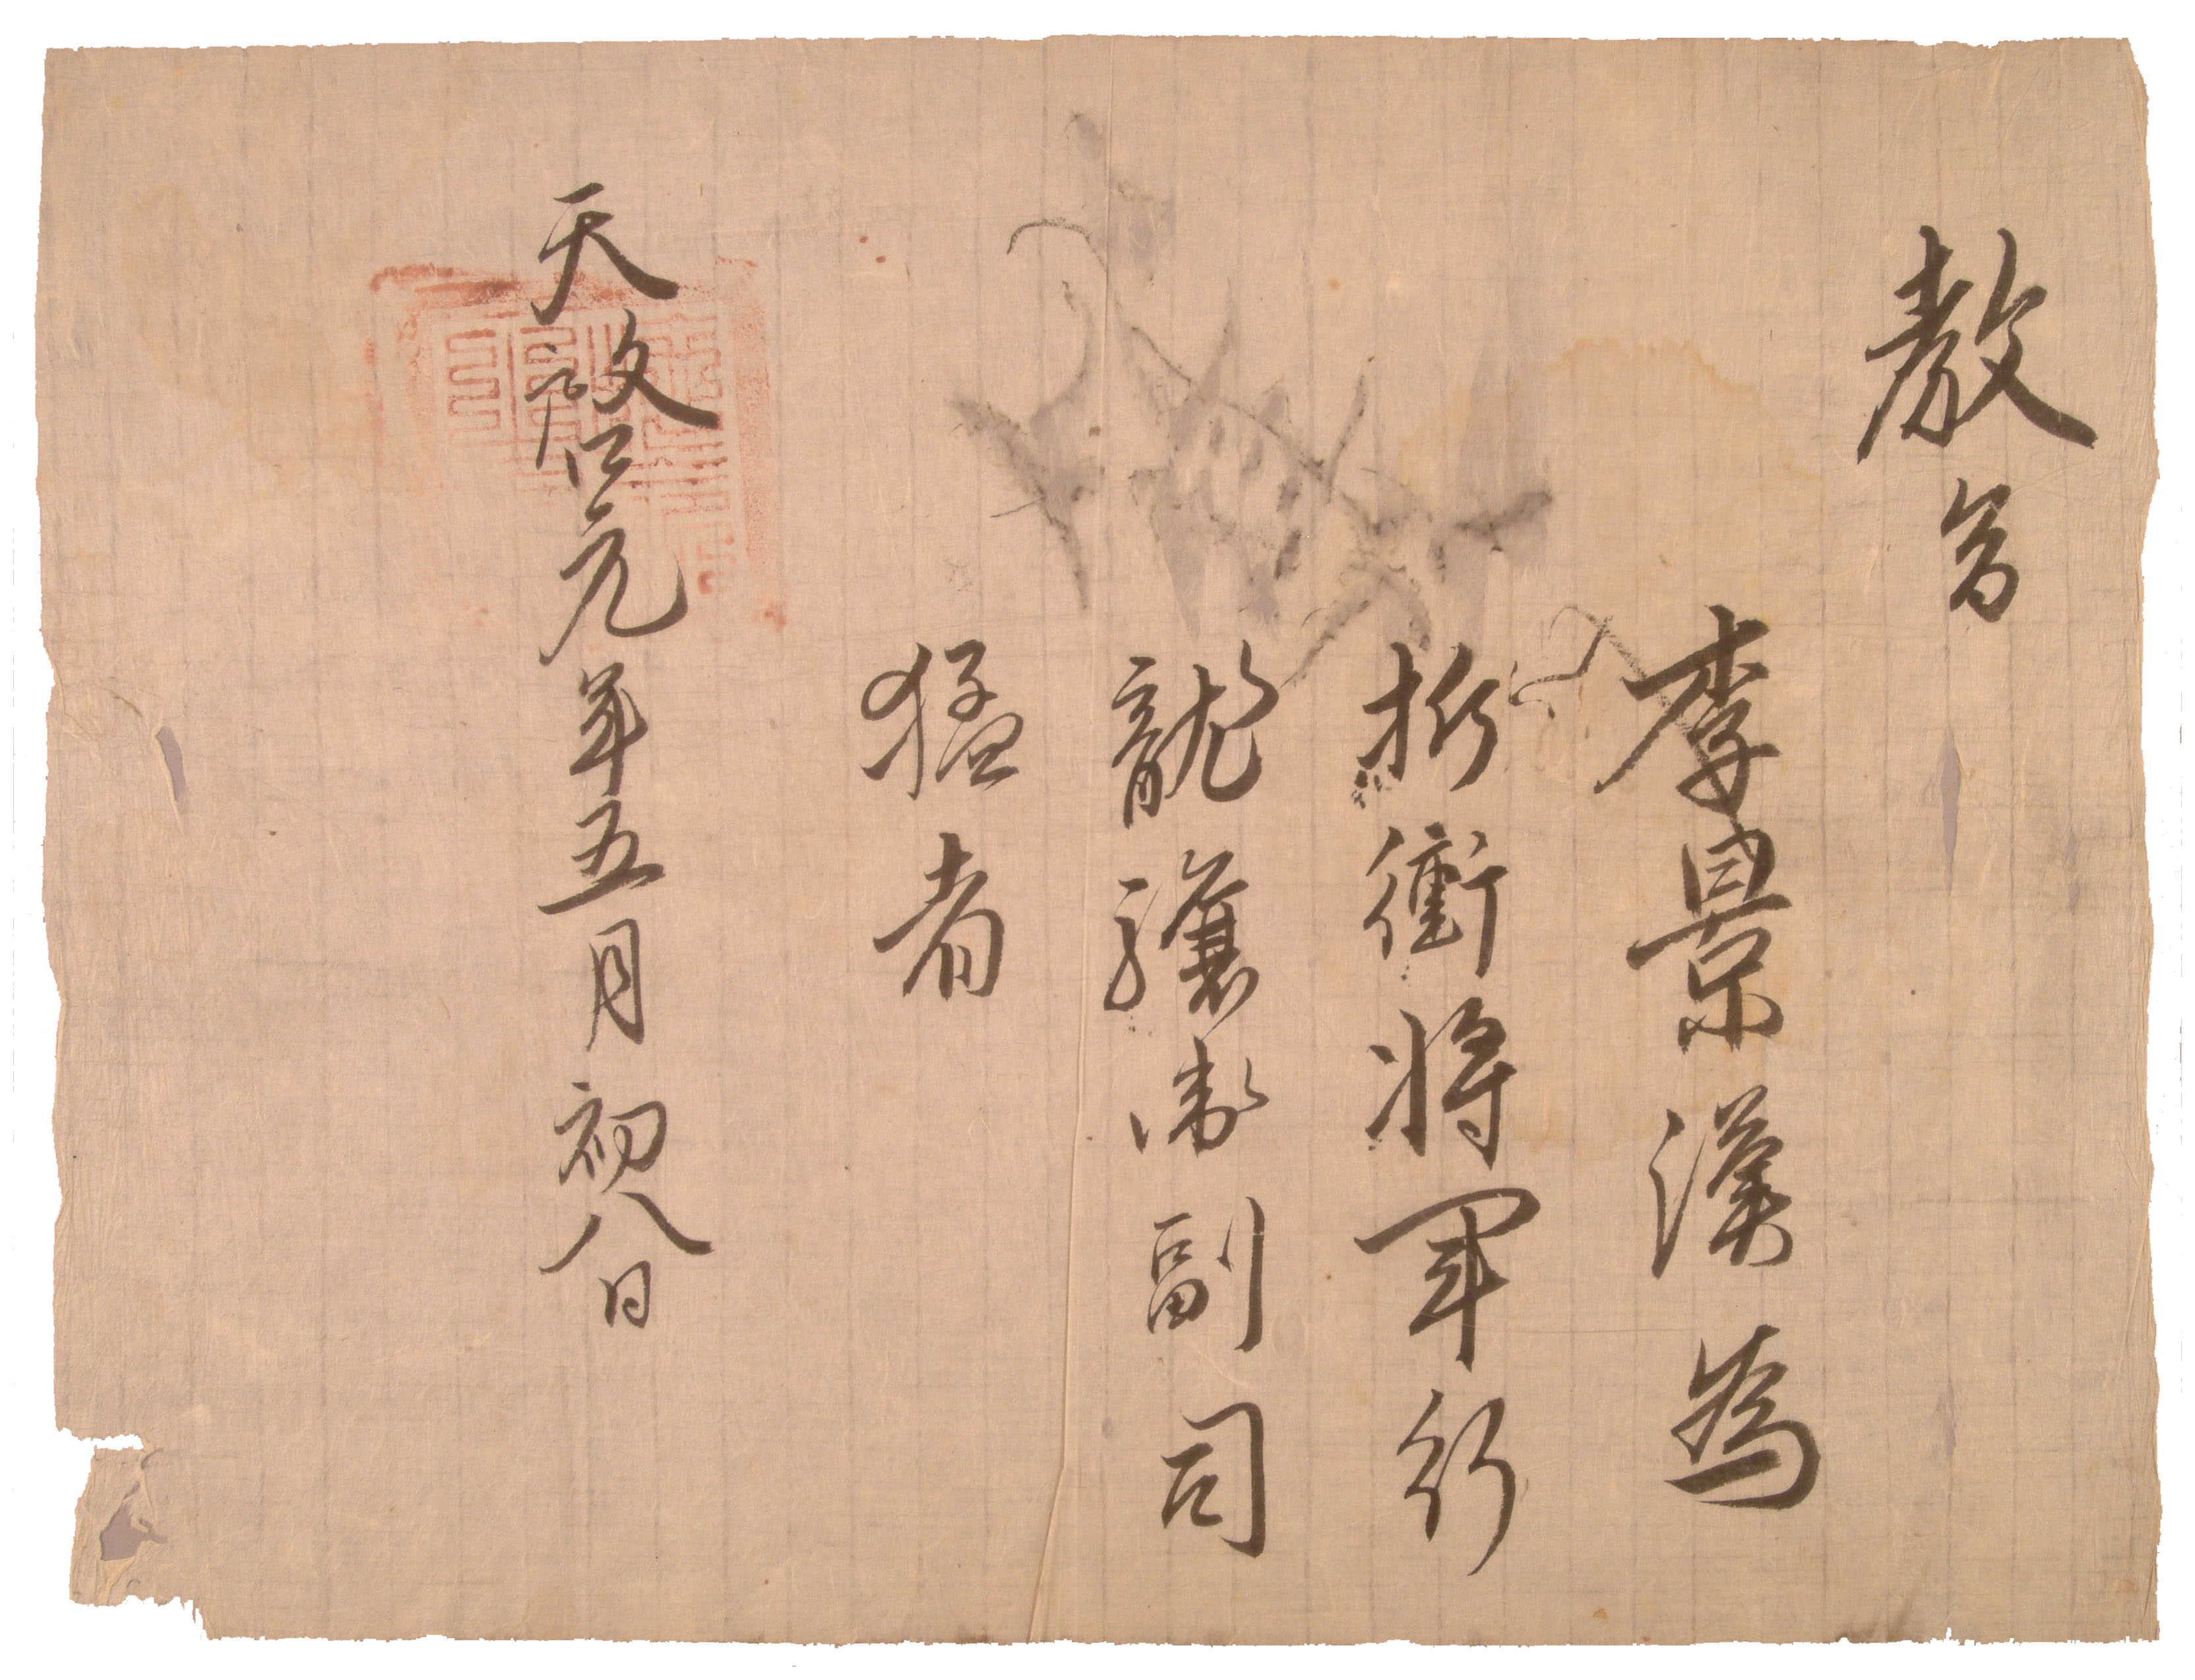 教旨
李景漢為
折衝將軍行
龍驤衛副司
猛者
天啓元年五月初八日